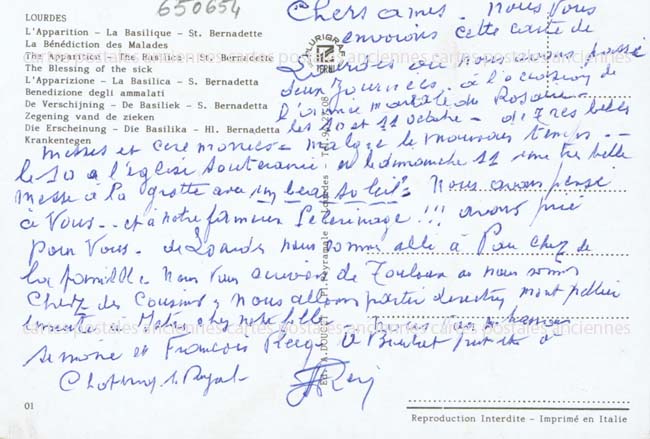 650654
LOURDES
L'Apparition - La Basilique - St. Bernadetta
La Bénediction des Malades
The Apparition - The Basilica - St. Bernadetta
The Blessing of the sick
L'Apparizione - La Basilica - S. Bernadetta
Benedizione degli ammalati
De Verschijning - De Basiliek - S. Bernadetta
Zegening vand de zieken
Die Erscheinung - Die Basilika - Hl. Bernadetta
Krankentegen
Chers amis. Nous Vous
envoyons cette carte de
Lourdes où nous avons passé
deux Journées. à l'occasion de
l'année mariale du Rosaire
les 10 et 11 octobre - de Très belles
messes et ceremonies - malgre le mauvais temps. -
le 10 à l'église Souterraine et le dimanche 11 une tre belle
messe à la grotte avec un beau soleil. Nous avons pensé
à Vous.. et à notre fameux Pelerinage!!! avons prié
pour Vous. de Lourdes nous sommes allé à Pau chez de
la famille. Nous Vous ecrivons de Toulouse ou nous sommes
Chez des Cousins, nous allons partir montpellier
ensuite à chez notre fille
Simone et François
01
cartes postales anciennes cartes postales anciennes cartes postales anciennes
Reproduction Interdite - Imprimé en Italie